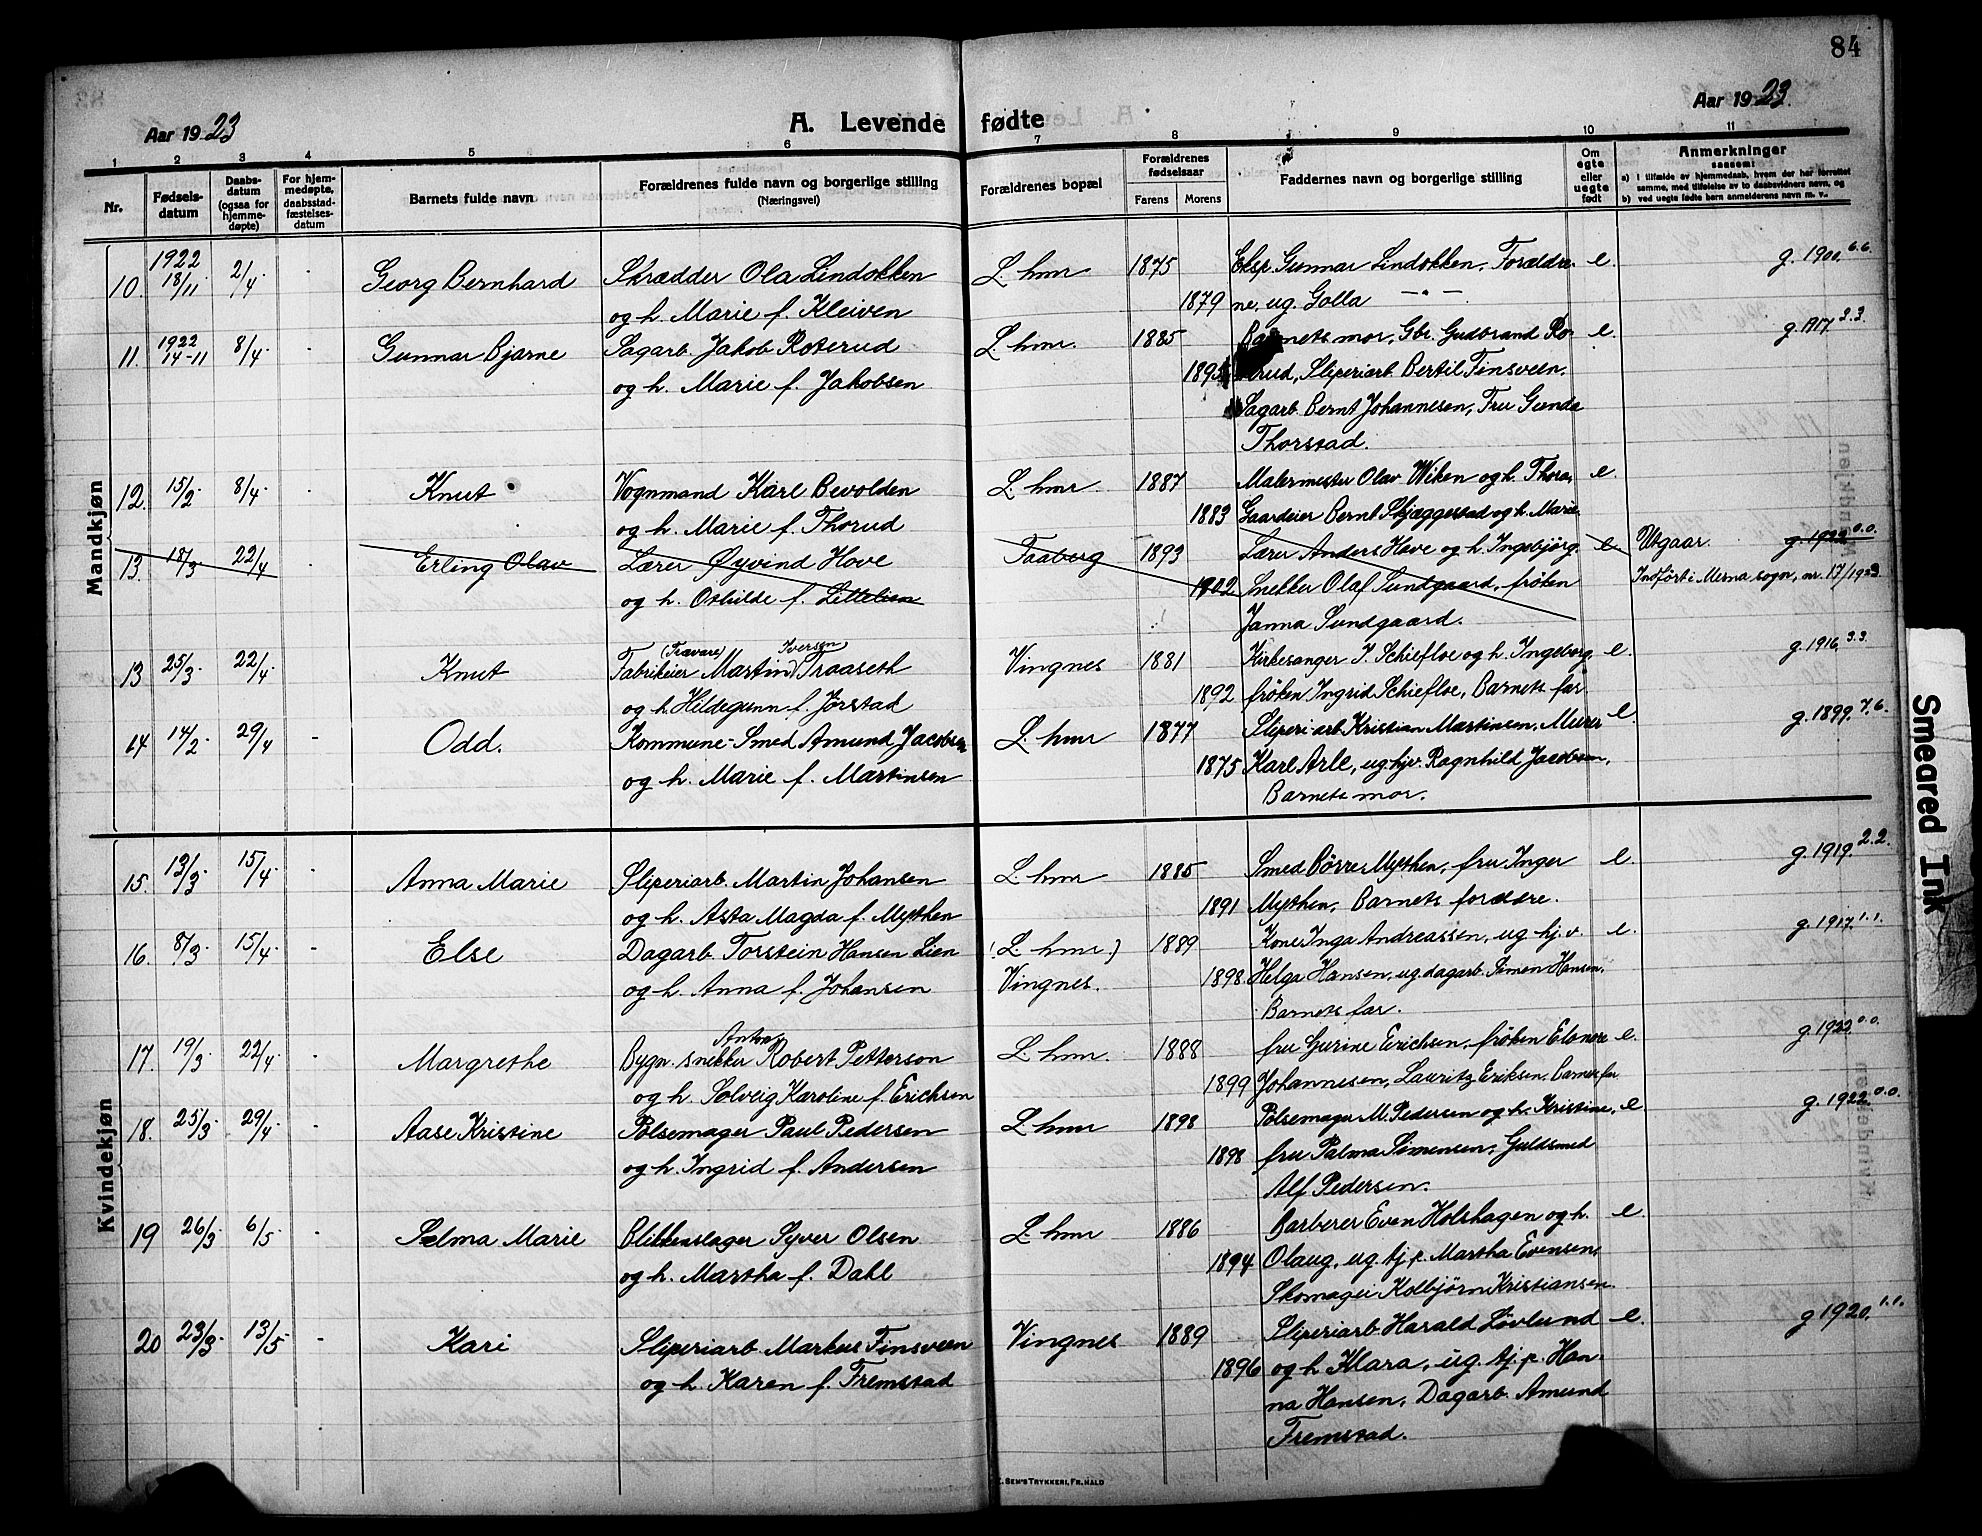 84
Aar 1923
A. Levende fødte
Aar 1923.
1 2 3 4 5 6 7 8 9 10 11
Nr.
Fødsels-datum
Daabs-datum (ogsaa for hjemme-døpte)
For hjem-medøpte, daabsstad-fæstelses-datum
Barnets fulde navn
Forældrenes fulde navn og borgerlige stilling (Næringsvei)
Forældrenes bopæl
Forældrenes fødselsaar
Farens Morens
Faddernes navn og borgerlige stilling
Om egte eller uegte født
Anmerkninger
saasom:
a) i tilfælde av hjemmedaab, hvem der har forrettet samme, med tilføielse av to daabsvidners navn, og
b) ved uegte fødte børn anmelderens navn m. v..
Mandkjøn
10. 1922 18/11 2/4 - Georg Bernhard Skrædder Ola Lindokken L.hmr 1875 Eksp. Gunnar Lindokken, Forældre- e. g. 1900. 6.6.
og h. Marie f. Kleiven 1879 ne, ug. Golla — " —
11. 1922 14-11 8/4 - Gunnar Bjarne Sagarb. Jakob Roterud L.hmr. 1885 Barnets mor, Gbr. Gudbrand Ro- e. g. 1917. 3.3.
og h. Marie f. Jakobsen 1895 terud, Sliperiarb. Bertil Finsveen.
Sagarb. Bernt Johannesen, Fru Gunda
Thorstad.
12. 15/2 8/4 - Knut Vognmand Karl Bevolden L.hmr. 1887 Malermester Olav Wiken og h. Thora, e.
og h. Marie f. Thorud 1883 Gaardeier Bernt Skjæggestad og h. Marie
13. 18/3 22/4 Erling Olav Lærer Øyvind Hove Faaberg 1893 Lærer Anders Hove og h. Ingebjørg. e. Utgaar. g. 1922 0.0.
og h. Oshilde f. Littelien 1902 Snekker Olaf Sundgaard, frøken Indført i Mesna sogn, nr. 17/1923.
Janna Sundgaard.
(Trævare) Iversen
13 25/3 22/4 - Knut Fabrikeier Martin Traaseth Vingnes 1881 Kirkesanger J. Schiefloe og h. Ingeborg, e. g. 1916, 3.3.
og h. Hildegunn f. Jørstad 1892 frøken Ingrid Schiefloe, Barnets far
14 14/2 29/4 - Odd. Kommune-Smed Amund Jacobsen L.hmr 1877 Sliperiarb. Kristian Martinsen, Murer e. g. 1899. 7.6.
og h. Marie f. Martinsen 1875 Karl Arle, ug. hjv. Ragnhild Jacobsen,
Barnets mor.
Kvindekjøn
15. 13/3 15/4 - Anna Marie Sliperiarb. Martin Johansen L.hmr 1885 Smed Børre Mythen, fru Inger e. g. 1919. 2.2.
og h. Asta Magda f. Mythen 1891 Mythen, Barnets forældre.
16. 8/3 15/4 - Else Dagarb. Torstein Hansen Lien (L.hmr.) 1889 Kone Inga Andreassen, ug. hj. v. e. g. 1917. 1.1.
og h. Anna f. Johansen Vingnes. 1898 Helga Hansen, ug. dagarb. Simen Hansen.
Barnets far.
Anton
17. 19/3 22/4 - Margrethe Bygn. snekker Robert Petterson L.hmr. 1888 fru Gurine Erichsen, frøken Elonore e. g. 1922. 0.0.
og h. Solveig Karoline f. Erichsen 1899 Johannesen, Lauritz Eriksen. Barnets far
18. 25/3 29/4 - Aase Kristine Pølsemager Paul Pedersen L.hmr 1898 Pølsemager M. Pedersen og h. Kristine, e g. 1922. 0.0.
og h. Ingrid f. Andersen 1898 fru Palma Simensen, Guldsmed
Alf Pedersen.
19 26/3 6/5 - Selma Marie Blikkenslager Syver Olsen L.hmr 1886 Barberer Even Holshagen og h. e.
og h. Martha f. Dahl 1894 Olaug, ug. tj. p. Martha Evensen,
Skomager Kolbjørn Kristiansen.
20 23/3 13/5 - Kari Sliperiarb. Markus Finsveen Vingnes 1889 Sliperiarb. Harald Løvlund e. g 1920. 1.1.
og h. Karen f. Fremstad 1896 og h. Klara, ug. tj. p. Han-
na Hansen, Dagarb. Amund
Fremstad.
SEN'S TRYKKERI, FR.HALD
Smeared Ink